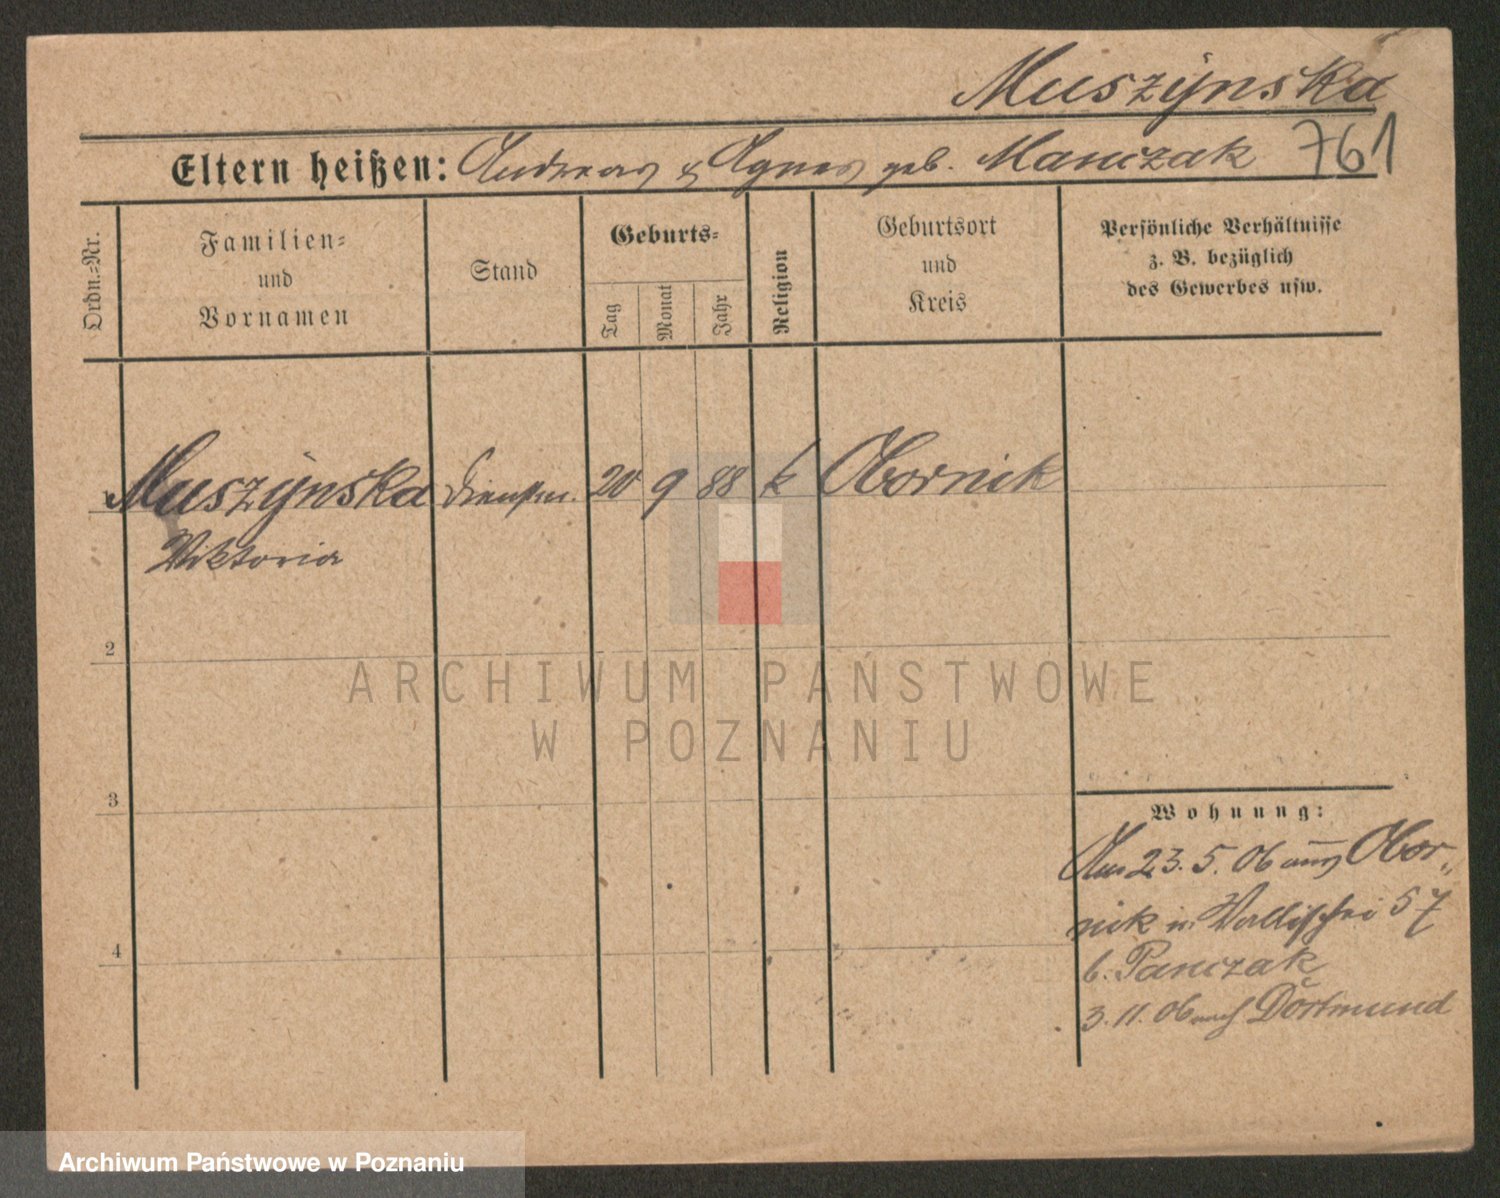 Muszyńska
Eltern heißen: Andreas & Agnes geb. Manczak 761
Ordn.=Nr.
Familien=
und
Vornamen
Stand
Geburts=
Tag
Monat
Jahr
Religion
Geburtsort
und
Kreis
Persönliche Verhältnisse
z. B. bezüglich
des Gewerbes usw.
Muszyńska 20 9 88 k Obornik
Viktoria
2
3
4
Wohnung:
Am 23.5.06 aus Obor-
nik n. Wallischei 57
b. Panczak
3.11.06 nach Dortmund
ARCHIWUM PAŃSTWOWE
W POZNANIU
Archiwum Państwowe w Poznaniu